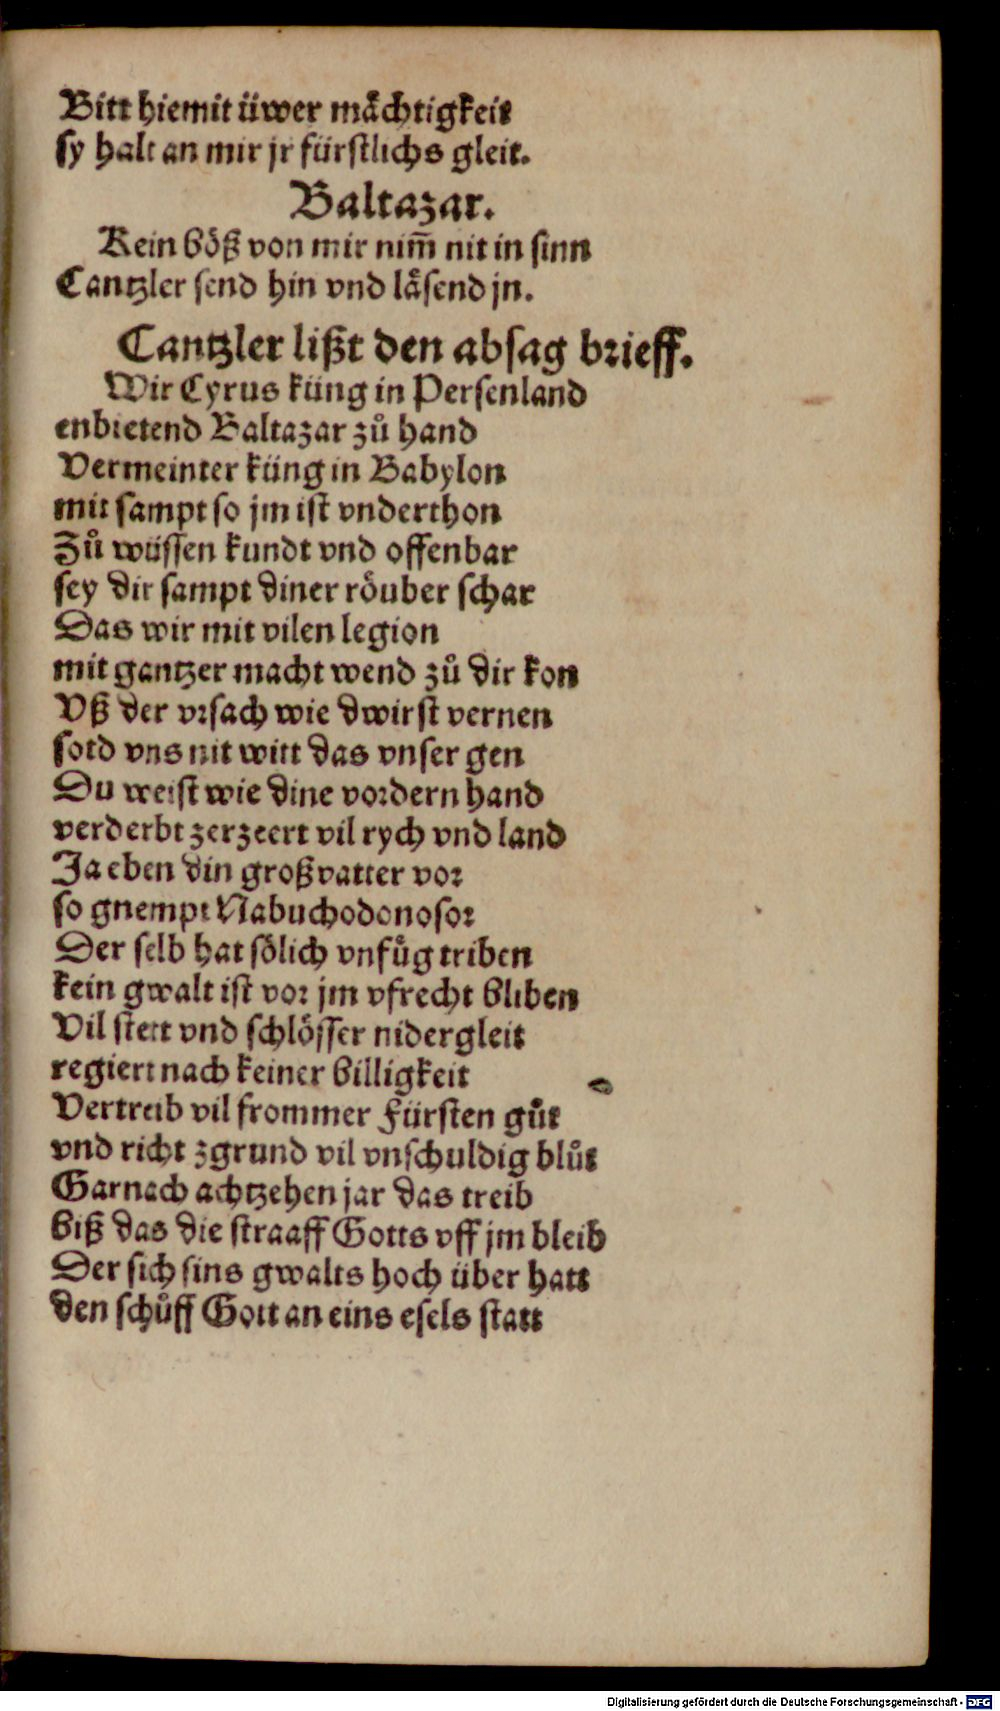 Bitt hiemit üwer mächtigkeit
sy halt an mir jr fürstlichs gleit.
Baltazar.
Kein böß von mir nim̄ nit in sinn
Cantzler send hin vnd läsend jn.
Cantzler lißt den absag brieff.
Wir Cyrus küng in Persenland
enbietend Baltazar zů hand
Vermeinter küng in Babylon
mit sampt so jm ist vnderthon
Zů wüssen kundt vnd offenbar
sey dir sampt diner röuber schar
Das wir mit vilen legion
mit gantzer macht wend zů dir kon
Vß der vrsach wie dwirst vernen
sotd vns nit witt das vnser gen
Du weist wie dine vordern hand
verderbt zerzeert vil rych vnd land
Ja eben din großvatter vor
so gnempt Nabuchodonosor
Der selb hat sölich vnfůg triben
kein gwalt ist vor jm vfrecht bliben
Vil stett vnd schlösser nidergleit
regiert nach keiner billigkeit
Vertreib vil frommer Fürsten gůt
vnd richt zgrund vil vnschuldig blůt
Gar nach achtzehen jar das treib
biß das die straaff Gotts vff jm bleib
Der sich sins gwalts hoch über hatt
den schůff Gott an eins esels statt
Digitalisierung gefördert durch die Deutsche Forschungsgemeinschaft - DFG